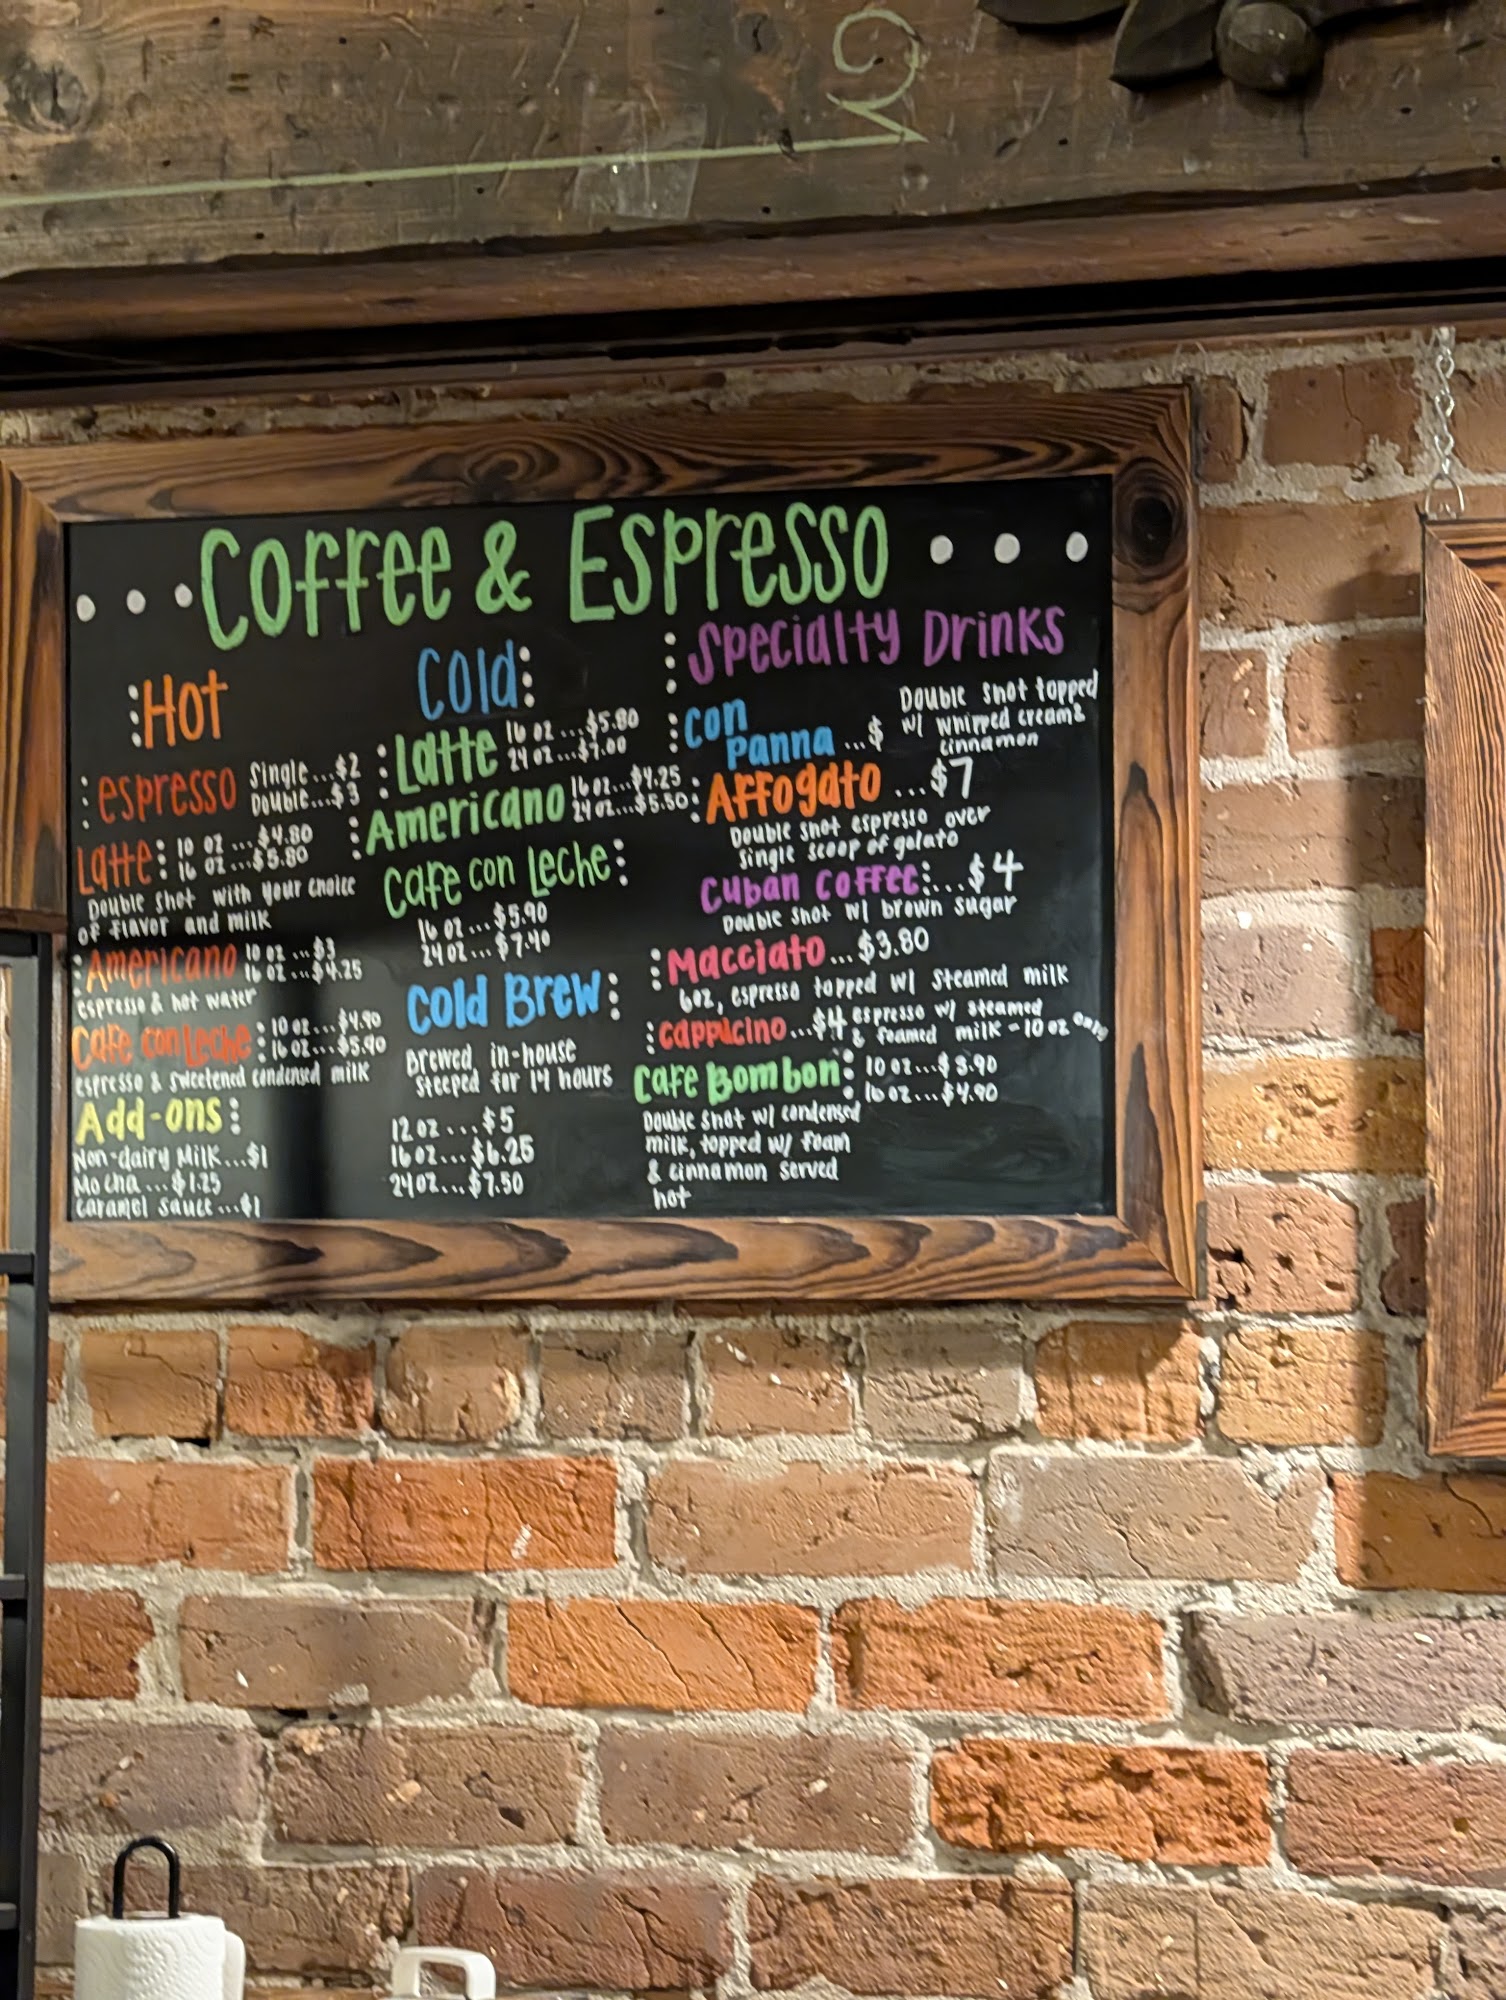 2
Coffee & Espresso
Hot
espresso Single...$2
Double...$3
Latte: 10 oz ...$4.80
16 oz ...$5.80
Double shot with your choice
of flavor and milk
Americano 10 oz ...$3
16 oz ...$4.25
espresso & hot water
Cafe con Leche: 10 oz...$4.90
16 oz...$5.90
espresso & sweetened condensed milk
Add-ons:
Non-dairy Milk...$1
Mocha ...$1.25
caramel sauce...$1
Cold:
Latte 16 oz ...$5.80
24 oz ...$7.00
Americano 16 oz...$4.25
24 oz...$5.50
Cafe con Leche:
16 oz...$5.90
24 oz...$7.40
Cold Brew:
Brewed in-house
steeped for 14 hours
12 oz ...$5
16 oz...$6.25
24 oz...$7.50
Specialty Drinks
Con
Panna ...$
Double shot topped
w/ whipped cream &
cinnamon
Affogato ...$7
Double shot espresso over
single scoop of gelato
Cuban Coffee:...$4
Double shot w/ brown sugar
Macciato...$3.80
6oz, espresso topped w/ steamed milk
Cappucino...$4 espresso w/ steamed
& foamed milk - 10 oz only
Cafe Bombon: 10 oz...$3.90
16 oz...$4.90
Double shot w/ condensed
milk, topped w/ foam
& cinnamon served
hot